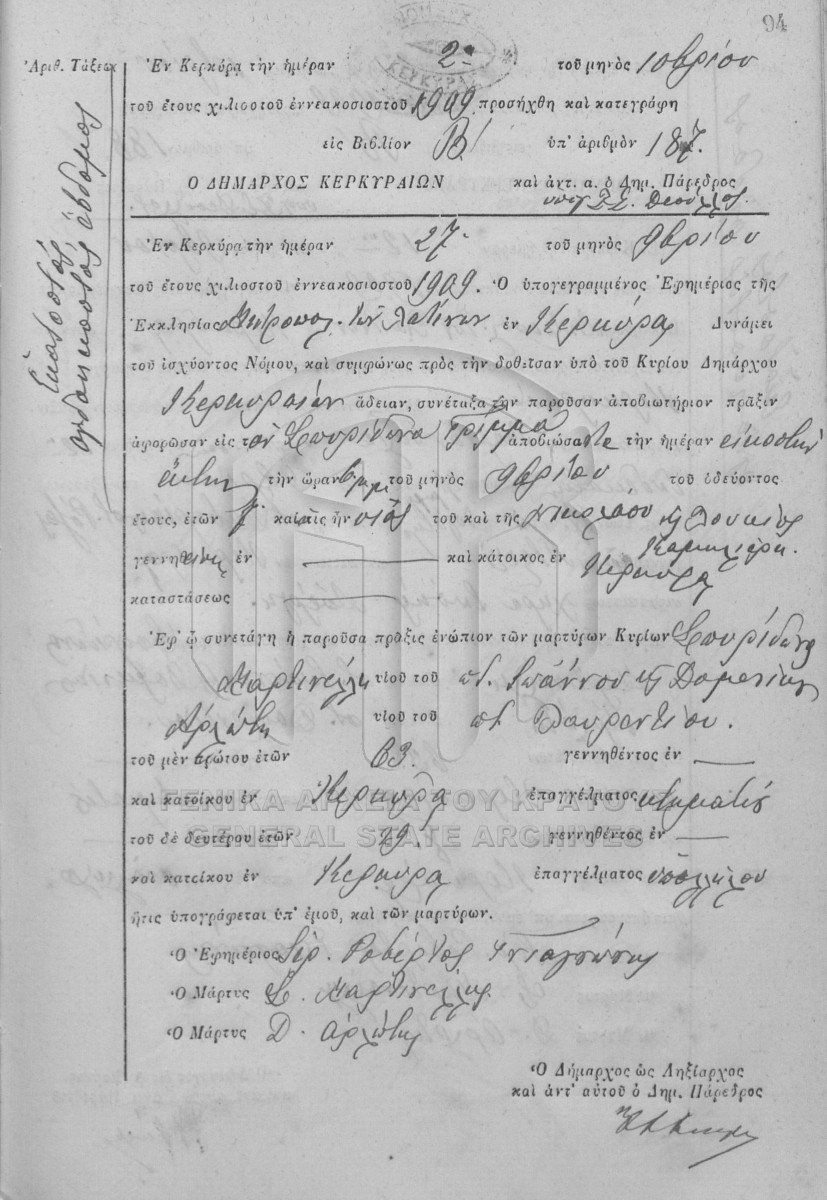 94
Ἀριθ. Τάξεως
Ἑκατοστὸς ὀγδοηκοστὸς ἕβδομος
Ἐν Κερκύρᾳ τὴν ἡμέραν 2α τοῦ μηνὸς 10βρίου
τοῦ ἔτους χιλιοστοῦ ἐννεακοσιοστοῦ 1909 προσήχθη καὶ κατεγράφη
εἰς Βιβλίον Β' ὑπ' ἀριθμὸν 187.
Ο ΔΗΜΑΡΧΟΣ ΚΕΡΚΥΡΑΙΩΝ καὶ ἀντ. α. ὁ Δημ. Πάρεδρος
Ἐν Κερκύρᾳ τὴν ἡμέραν 27 τοῦ μηνὸς 9βρίου
τοῦ ἔτους χιλιοστοῦ ἐννεακοσιοστοῦ 1909. Ὁ ὑπογεγραμμένος Ἐφημέριος τῆς
Ἐκκλησίας Μητροπολ. τῶν Λατίνων ἐν Κερκύρᾳ Δυνάμει
τοῦ ἰσχύοντος Νόμου, καὶ συμφώνως πρὸς τὴν δοθεῖσαν ὑπὸ τοῦ Κυρίου Δημάρχου
Κερκυραίων ἄδειαν, συνέταξα τὴν παροῦσαν ἀποβιωτήριον πρᾶξιν
ἀφορῶσαν εἰς τὸν Σπυρίδωνα Γρίμμα ἀποβιώσαντα τὴν ἡμέραν εἰκοστὴν
ἕκτην τὴν ὥραν τοῦ μηνὸς 9βρίου τοῦ ὁδεύοντος
ἔτους, ἐτῶν καὶ ἦν υἱὸς τοῦ καὶ τῆς Νικολάου κ Λουκίας
Καμηλιέρη.
γεννηθεὶς ἐν — καὶ κάτοικος ἐν Κερκύρᾳ
καταστάσεως —
Ἐφ' ᾧ συνετάγη ἡ παροῦσα πρᾶξις ἐνώπιον τῶν μαρτύρων Κυρίων Σπυρίδωνος
Μαρτινέλλη υἱοῦ τοῦ ποτ. Ἰωάννου κ Δομενίκου
Ἀρλώτη υἱοῦ τοῦ ποτ. Λαυρεντίου.
τοῦ μὲν πρώτου ἐτῶν 63. γεννηθέντος ἐν —
καὶ κατοίκου ἐν Κερκύρᾳ ἐπαγγέλματος κτηματίου
τοῦ δὲ δευτέρου ἐτῶν 29. γεννηθέντος ἐν —
καὶ κατοίκου ἐν Κερκύρᾳ ἐπαγγέλματος ὑπαλλήλου
ἥτις ὑπογράφεται ὑπ' ἐμοῦ, καὶ τῶν μαρτύρων.
Ὁ Ἐφημέριος Ἱερ. Ροβέρτος
Ὁ Μάρτυς Σ. Μαρτινέλλης
Ὁ Μάρτυς Δ. Ἀρλώτης
Ὁ Δήμαρχος ὡς Ληξίαρχος
καὶ ἀντ' αὐτοῦ ὁ Δημ. Πάρεδρος
ΓΕΝΙΚΑ ΑΡΧΕΙΑ ΤΟΥ ΚΡΑΤΟΥΣ
GENERAL STATE ARCHIVES